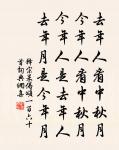 去年人看中秋月
今年人看中秋月
今年人是去年人
去年月是今年月
釋宗杲偈頌一百六十
首詞典網書